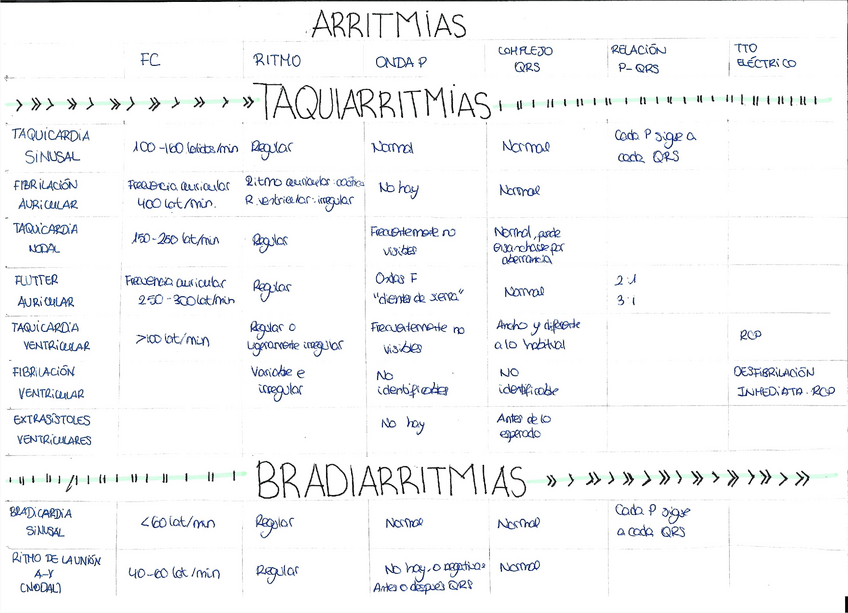 ARRITMIAS
FC RITMO ONDA P COMPLEJO QRS RELACIÓN P-QRS TTO ELÉCTRICO
TAQUIARRITMIAS
TAQUICARDIA SINUSAL 100-160 latidos/min Regular Normal Normal Cada P sigue a cada QRS
FIBRILACIÓN AURICULAR Frecuencia auricular 400 lat/min. Ritmo auricular: caótico R. ventricular: irregular No hay Normal
TAQUICARDIA NODAL 150-250 lat/min Regular Frecuentemente no visibles Normal, puede ensancharse por aberrancia
FLUTTER AURICULAR Frecuencia auricular 250-300 lat/min Regular Ondas F "dientes de sierra" Normal 2:1 3:1
TAQUICARDIA VENTRICULAR >100 lat/min Regular o ligeramente irregular Frecuentemente no visibles Ancho y diferente a lo habitual RCP
FIBRILACIÓN VENTRICULAR Variable e irregular No identificables NO identificable DESFIBRILACIÓN INMEDIATA. RCP
EXTRASÍSTOLES VENTRICULARES No hay Antes de lo esperado
BRADIARRITMIAS
BRADICARDIA SINUSAL <60 lat/min Regular Normal Normal Cada P sigue a cada QRS
RITMO DE LA UNIÓN A-V (NODAL) 40-60 lat/min Regular No hay, o negativas Antes o después QRS Normal